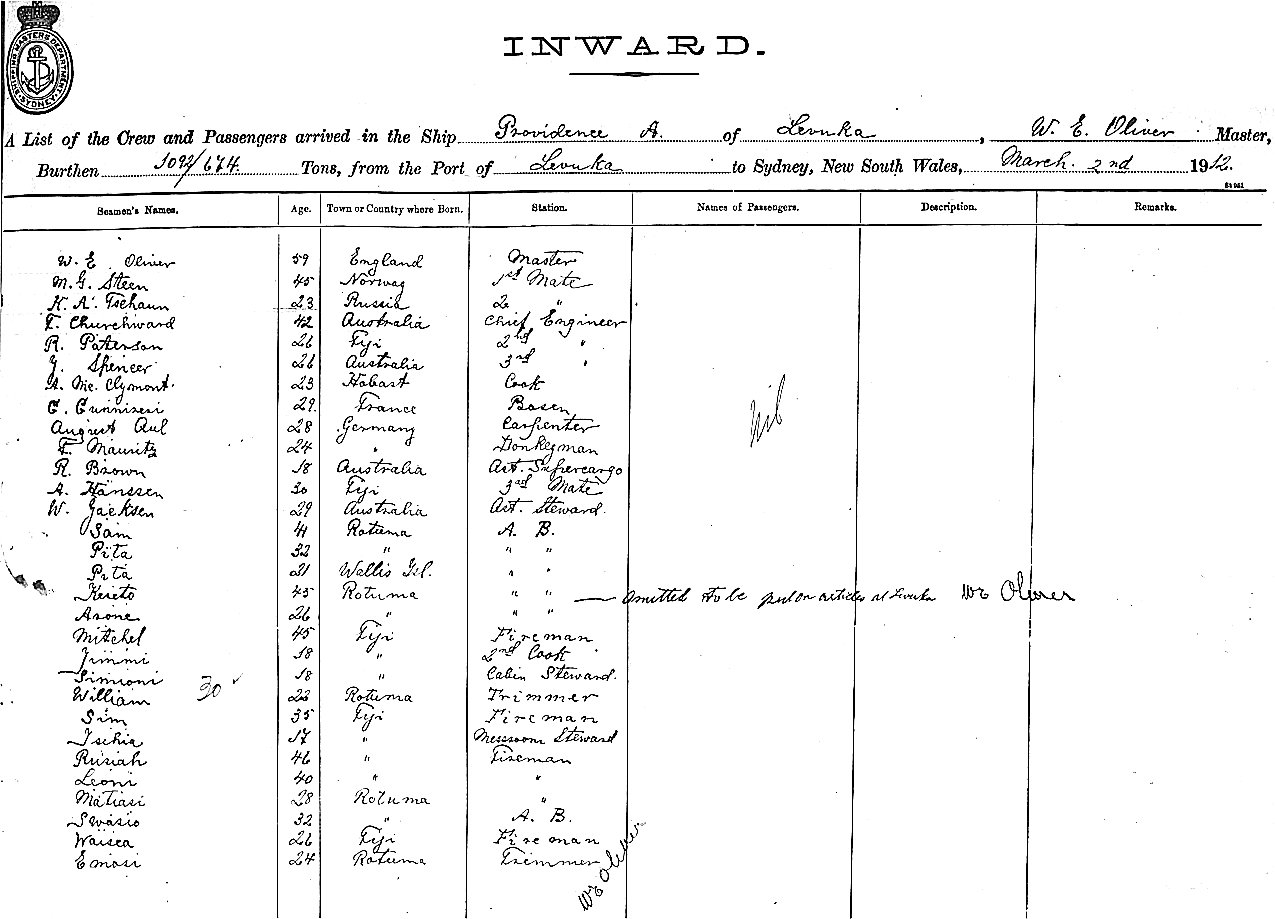 SHIPPING MASTERS DEPARTMENT SYDNEY
INWARD.
A List of the Crew and Passengers arrived in the Ship Providence A. of Levuka, W. E. Oliver Master,
Burthen 1092/674. Tons, from the Port of Levuka to Sydney, New South Wales, March. 2nd 1912.
Seamen's Names. Age. Town or Country where Born. Station. Names of Passengers. Description. Remarks.
W. E. Oliver 59 England Master
M. G. Steen 45 Norway 1st Mate
K. A. Tschaun 23 Russia 2 "
F. Churchward 42 Australia Chief Engineer
R. Paterson 26 Fiji 2nd "
J. Spencer 26 Australia 3rd "
A. Mc. Clymont. 23 Hobart Cook
C. 29. France Bosen
August Aul 28 Germany Carpenter
F. Mauritz 24 " Donkeyman
Nil
R. Brown 18 Australia Ast. Supercargo
A. Hanssen 30 Fiji 3rd Mate
W. Jacksen 29 Australia Ast. Steward.
Sam 41 Rotuma A. B.
Pita 32 " " "
Pita 21 Wallis Isl. " "
Kereto 45 Rotuma " " — omitted to be put on articles at Levuka WE Oliver
Arone 26 " " "
Mitchel 45 Fiji Fireman
Jimmi 18 " 2nd Cook
Simioni 18 " Cabin Steward.
William 30 22 Rotuma Trimmer
Sim 35 Fiji Fireman
17 " Messroom Steward
Rusiah 46 " Fireman
Leoni 40 " "
Matiasi 28 Rotuma "
Swasio 32 " A. B.
Waisea 26 Fiji Fireman
Emosi 24 Rotuma Trimmer
WE Oliver